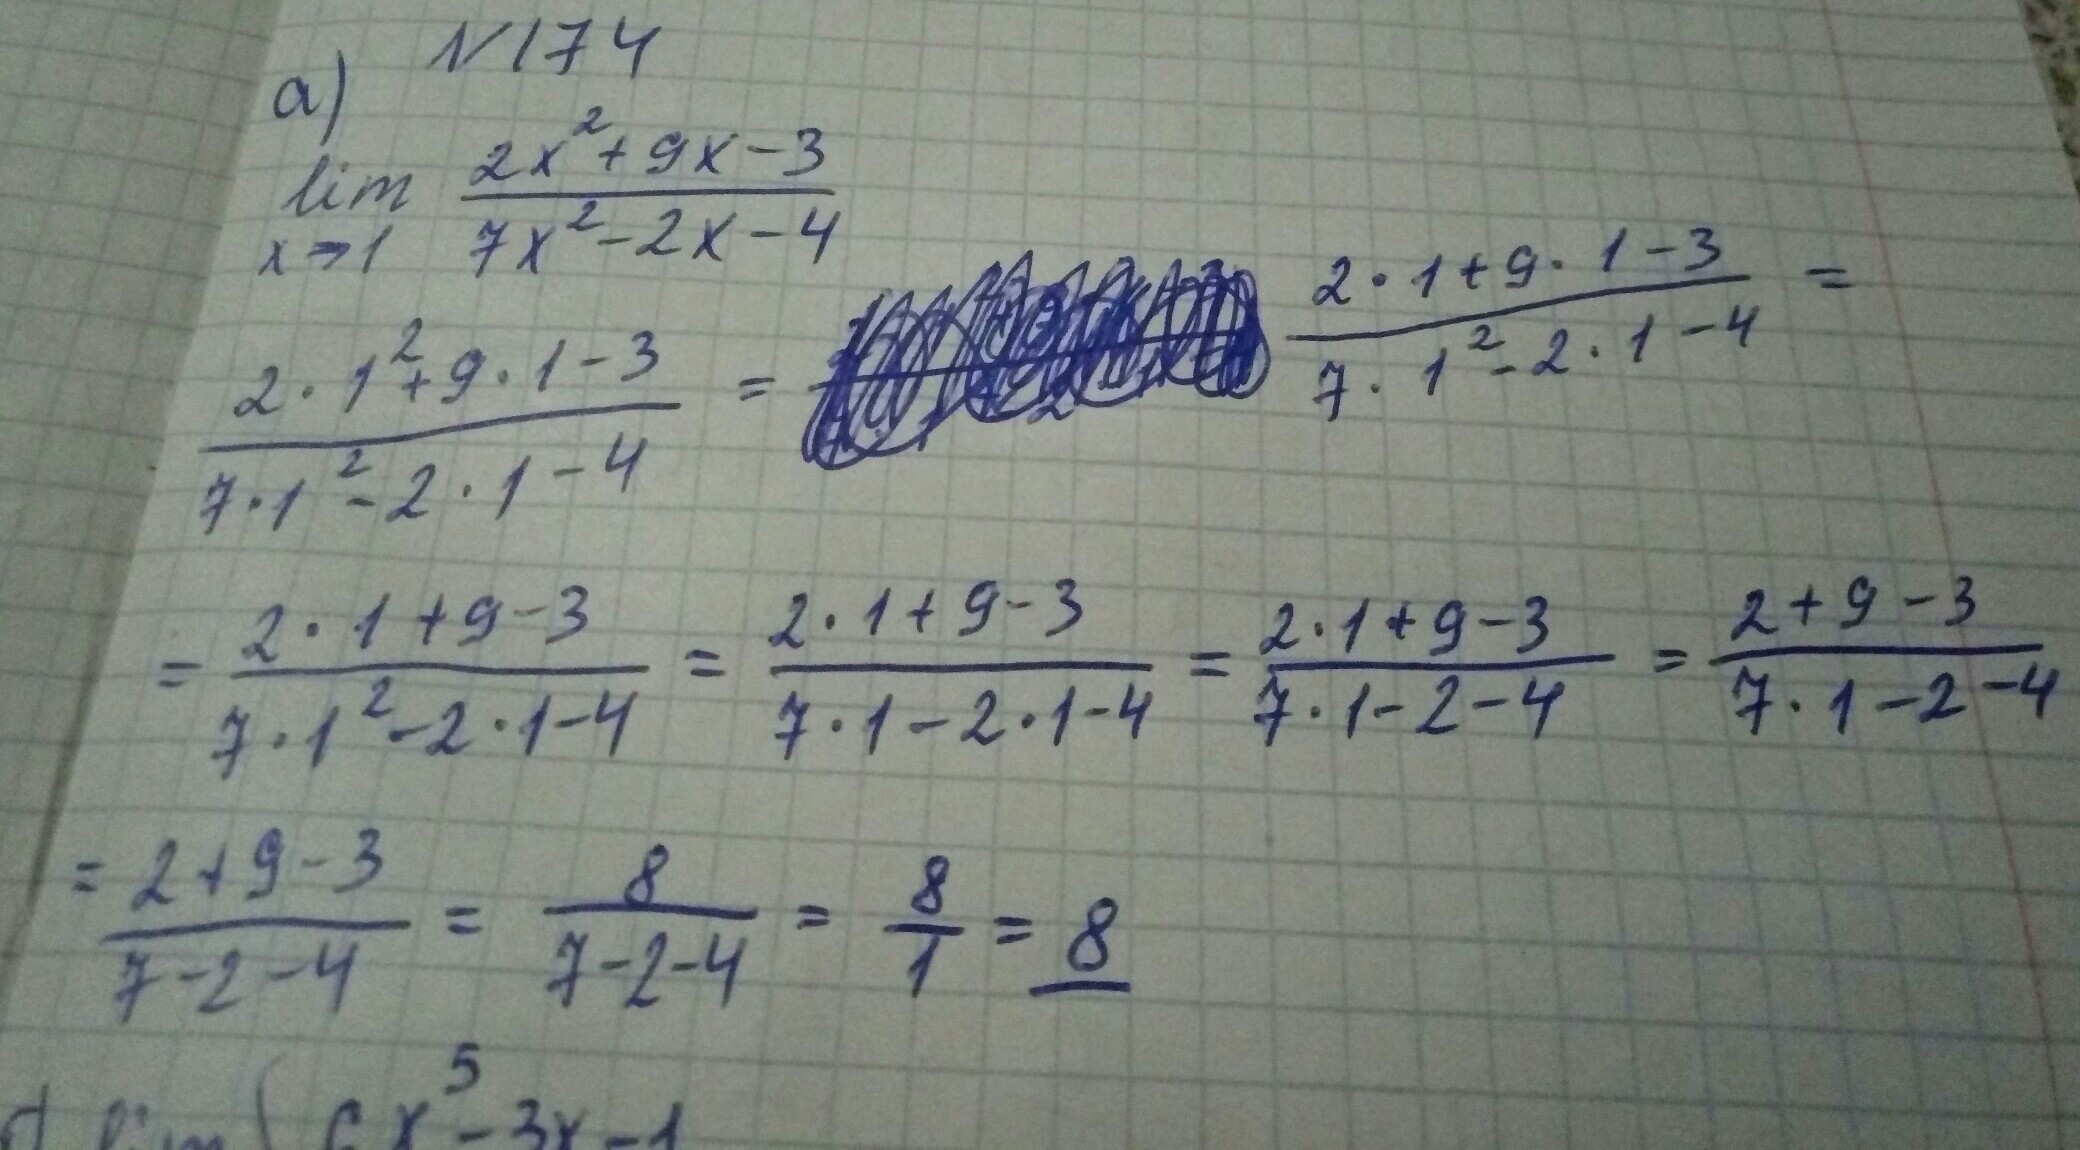 N174
a)
lim x→1 (2x²+9x-3)/(7x²-2x-4)
(2·1²+9·1-3)/(7·1²-2·1-4) = (2·1+9·1-3)/(7·1²-2·1-4) =
= (2·1+9-3)/(7·1²-2·1-4) = (2·1+9-3)/(7·1-2·1-4) = (2·1+9-3)/(7·1-2-4) = (2+9-3)/(7·1-2-4)
= (2+9-3)/(7-2-4) = 8/(7-2-4) = 8/1 = 8
lim ( 6x⁵-3x-1